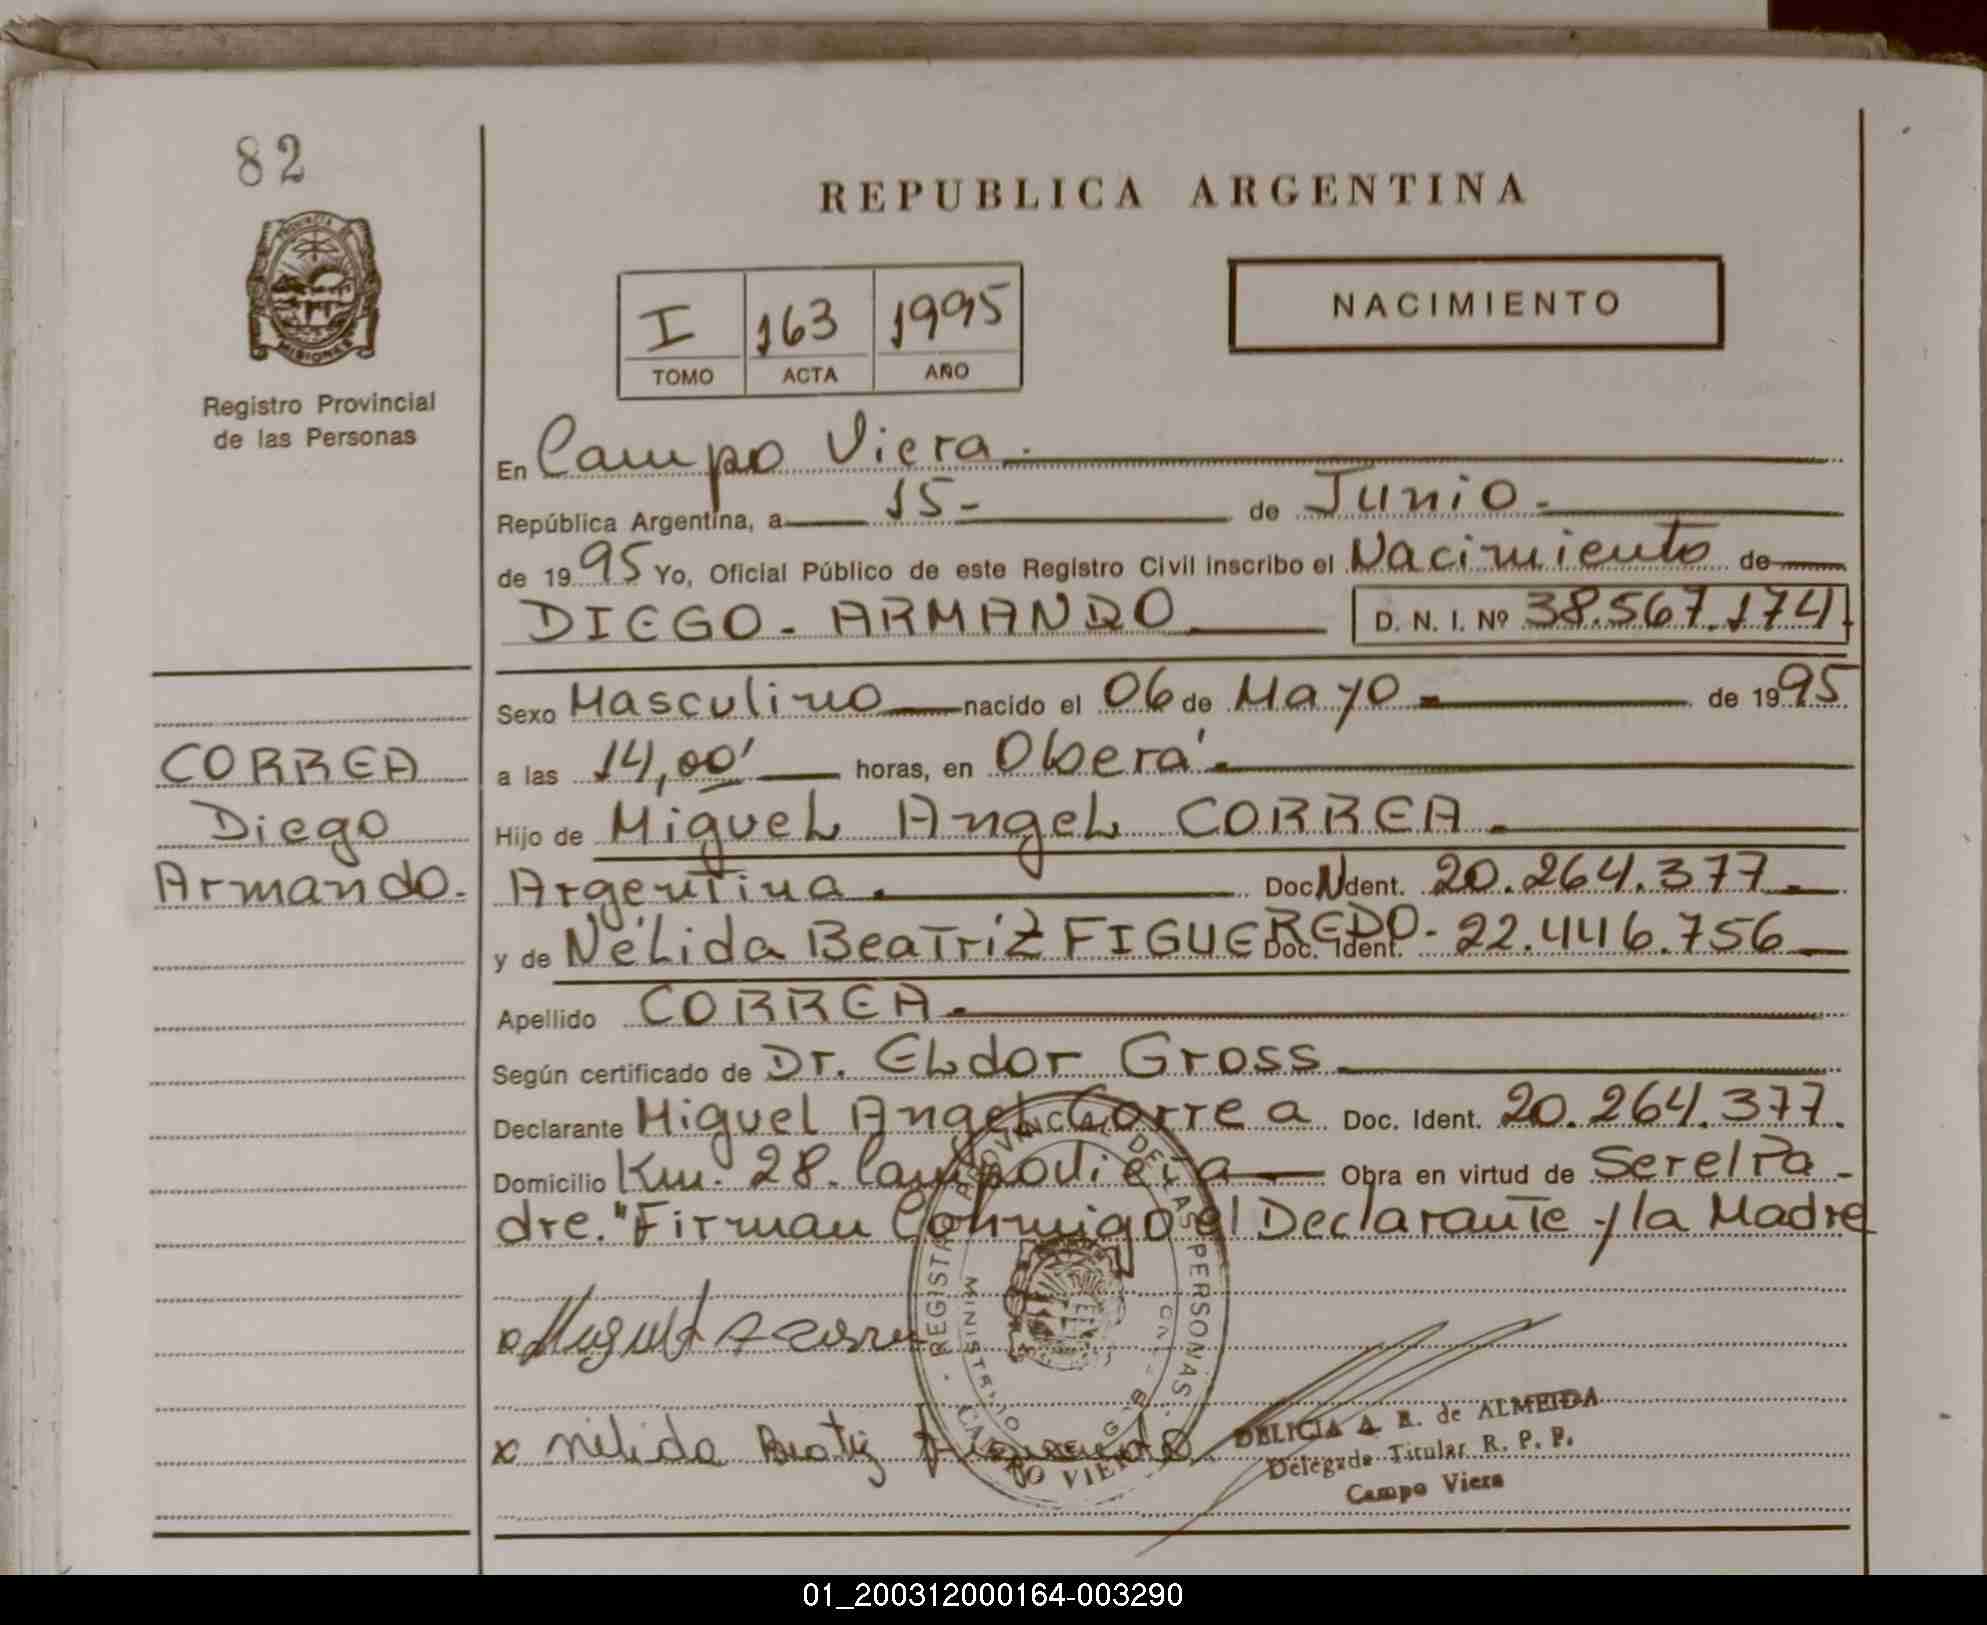 82
REPUBLICA ARGENTINA
PROVINCIA
MISIONES
NACIMIENTO
I 163 1995
TOMO ACTA AÑO
Registro Provincial
de las Personas
En Campo Viera.
República Argentina, a 15- de Junio.
de 1995 Yo, Oficial Público de este Registro Civil inscribo el Nacimiento de
DIEGO - ARMANDO D. N. I. Nº 38.567.174
Sexo Masculino nacido el 06 de Mayo de 1995
CORREA
Diego
Armando.
a las 14,00' horas, en Oberá.
Hijo de Miguel Angel CORREA.
Argentina. Doc. Ident. 20.264.377
y de Nélida Beatríz FIGUEREDO- Doc. Ident. 22.446.756
Apellido CORREA.
Según certificado de Dr. Eldor Gross
Declarante Miguel Angel Correa Doc. Ident. 20.264.377.
Domicilio Km. 28. Campo Viera Obra en virtud de Ser el Pa-
dre." Firman Conmigo el Declarante y la Madre
REGISTRO PROVINCIAL DE LAS PERSONAS
MINISTERIO
CAMPO VIERA
x Miguel A Correa
x nelida Beatriz Figueredo
DELICIA A. R. de ALMEIDA
Delegada Titular R. P. P.
Campo Viera
01_200312000164-003290